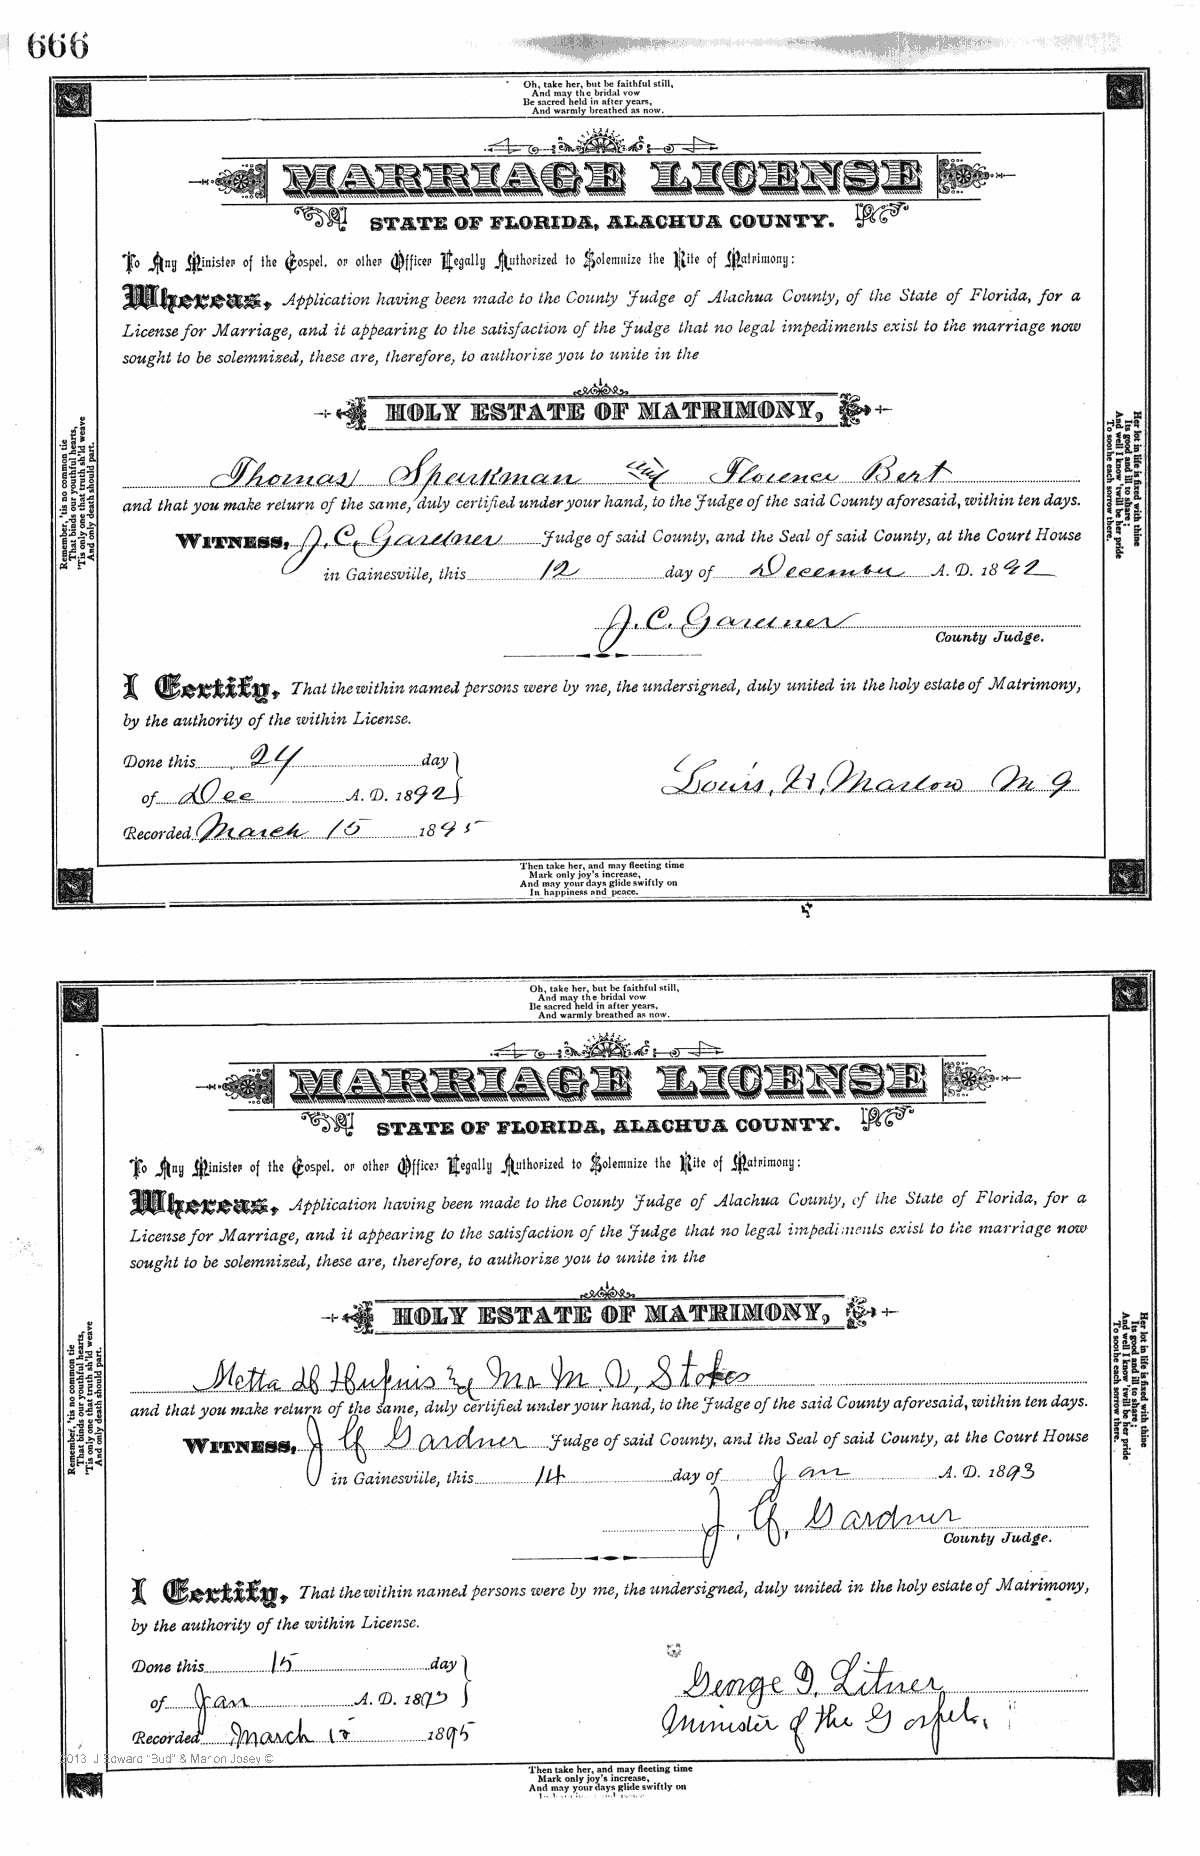 666
Oh, take her, but be faithful still,
And may the bridal vow
Be sacred held in after years,
And warmly breathed as now.
MARRIAGE LICENSE
STATE OF FLORIDA, ALACHUA COUNTY.
To Any Minister of the Gospel, or other Officer Legally Authorized to Solemnize the Rite of Matrimony:
Whereas, Application having been made to the County Judge of Alachua County, of the State of Florida, for a
License for Marriage, and it appearing to the satisfaction of the Judge that no legal impediments exist to the marriage now
sought to be solemnized, these are, therefore, to authorize you to unite in the
HOLY ESTATE OF MATRIMONY,
Thomas Sparkman and Florence Bert
and that you make return of the same, duly certified under your hand, to the Judge of the said County aforesaid, within ten days.
WITNESS, J. C. Gardner Judge of said County, and the Seal of said County, at the Court House
in Gainesville, this 12 day of December A. D. 1892
J. C. Gardner
County Judge.
I Certify, That the within named persons were by me, the undersigned, duly united in the holy estate of Matrimony,
by the authority of the within License.
Done this 24 day
of Dec A. D. 1892
Louis. H. Marlow M G
Recorded March 15 1895
Remember, 'tis no common tie
That binds our youthful hearts,
'Tis only one that truth sh'ld weave
And only death should part.
Her lot in life is fixed with thine
Its good and ill to share;
And well I know 'twill be her pride
To soothe each sorrow there.
Then take her, and may fleeting time
Mark only joy's increase,
And may your days glide swiftly on
In happiness and peace.
Oh, take her, but be faithful still,
And may the bridal vow
Be sacred held in after years,
And warmly breathed as now.
MARRIAGE LICENSE
STATE OF FLORIDA, ALACHUA COUNTY.
To Any Minister of the Gospel, or other Officer Legally Authorized to Solemnize the Rite of Matrimony:
Whereas, Application having been made to the County Judge of Alachua County, of the State of Florida, for a
License for Marriage, and it appearing to the satisfaction of the Judge that no legal impediments exist to the marriage now
sought to be solemnized, these are, therefore, to authorize you to unite in the
HOLY ESTATE OF MATRIMONY,
Metta & M. V. Stokes
and that you make return of the same, duly certified under your hand, to the Judge of the said County aforesaid, within ten days.
WITNESS, J C Gardner Judge of said County, and the Seal of said County, at the Court House
in Gainesville, this 14 day of Jan A. D. 1893
J. C. Gardner
County Judge.
I Certify, That the within named persons were by me, the undersigned, duly united in the holy estate of Matrimony,
by the authority of the within License.
Done this 15 day
of Jan A. D. 1893
George D. Litner
Minister of the Gospel.
Recorded March 15 1895
Remember, 'tis no common tie
That binds our youthful hearts,
'Tis only one that truth sh'ld weave
And only death should part.
Her lot in life is fixed with thine
Its good and ill to share;
And well I know 'twill be her pride
To soothe each sorrow there.
2013 J Edward "Bud" & Marion Josey ©
Then take her, and may fleeting time
Mark only joy's increase,
And may your days glide swiftly on
In happiness and peace